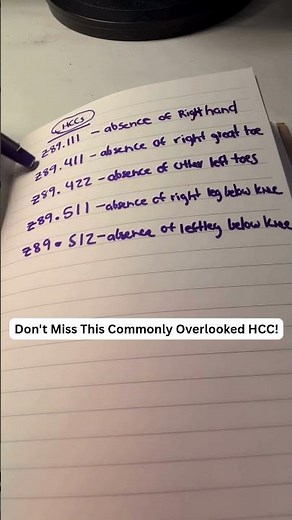 HCCs
Z89.111 - absence of Right hand
Z89.411 - absence of right great toe
Z89.422 - absence of other left toes
Z89.511 - absence of right leg below knee
Z89.512 - absence of left leg below knee
Don't Miss This Commonly Overlooked HCC!